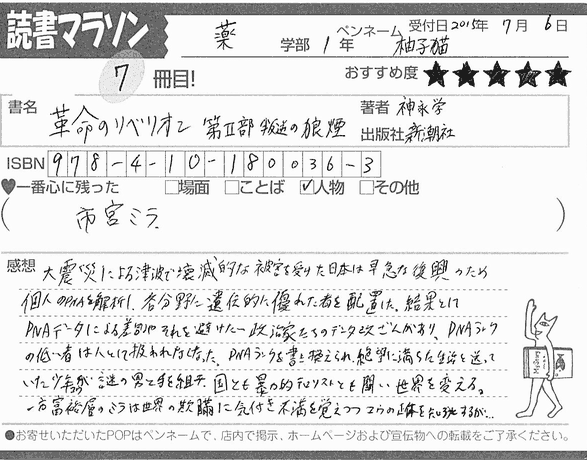 読書マラソン
薬 学部 1 年 ペンネーム 柚子猫 受付日 2015年 7月 6日
7 冊目! おすすめ度 ★★★★★
書名 革命のリベリオン 第Ⅱ部 叛逆の狼煙
著者 神永学
出版社 新潮社
ISBN 978-4-10-180036-3
♥一番心に残った □場面 □ことば ☑人物 □その他
( 市宮ミラ )
感想 大震災による津波で壊滅的な被害を受けた日本は早急な復興のため
個人のDNAを解析し、各分野に遺伝的に優れた者を配置した。結果として
DNAデータによる差別やそれを避けた政治家たちのデータ改ざんがあり、DNAランク
の低い者は人として扱われなかった。DNAランクを書き換えられ、絶望に満ちた生活を送って
いた少年が謎の男と手を組み、国とも暴力的テロリストとも闘い世界を変える。
富裕層のミラは世界の欺瞞に気付き不満を覚えつつ
●お寄せいただいたPOPはペンネームで、店内で掲示、ホームページおよび宣伝物への転載をご了承ください。